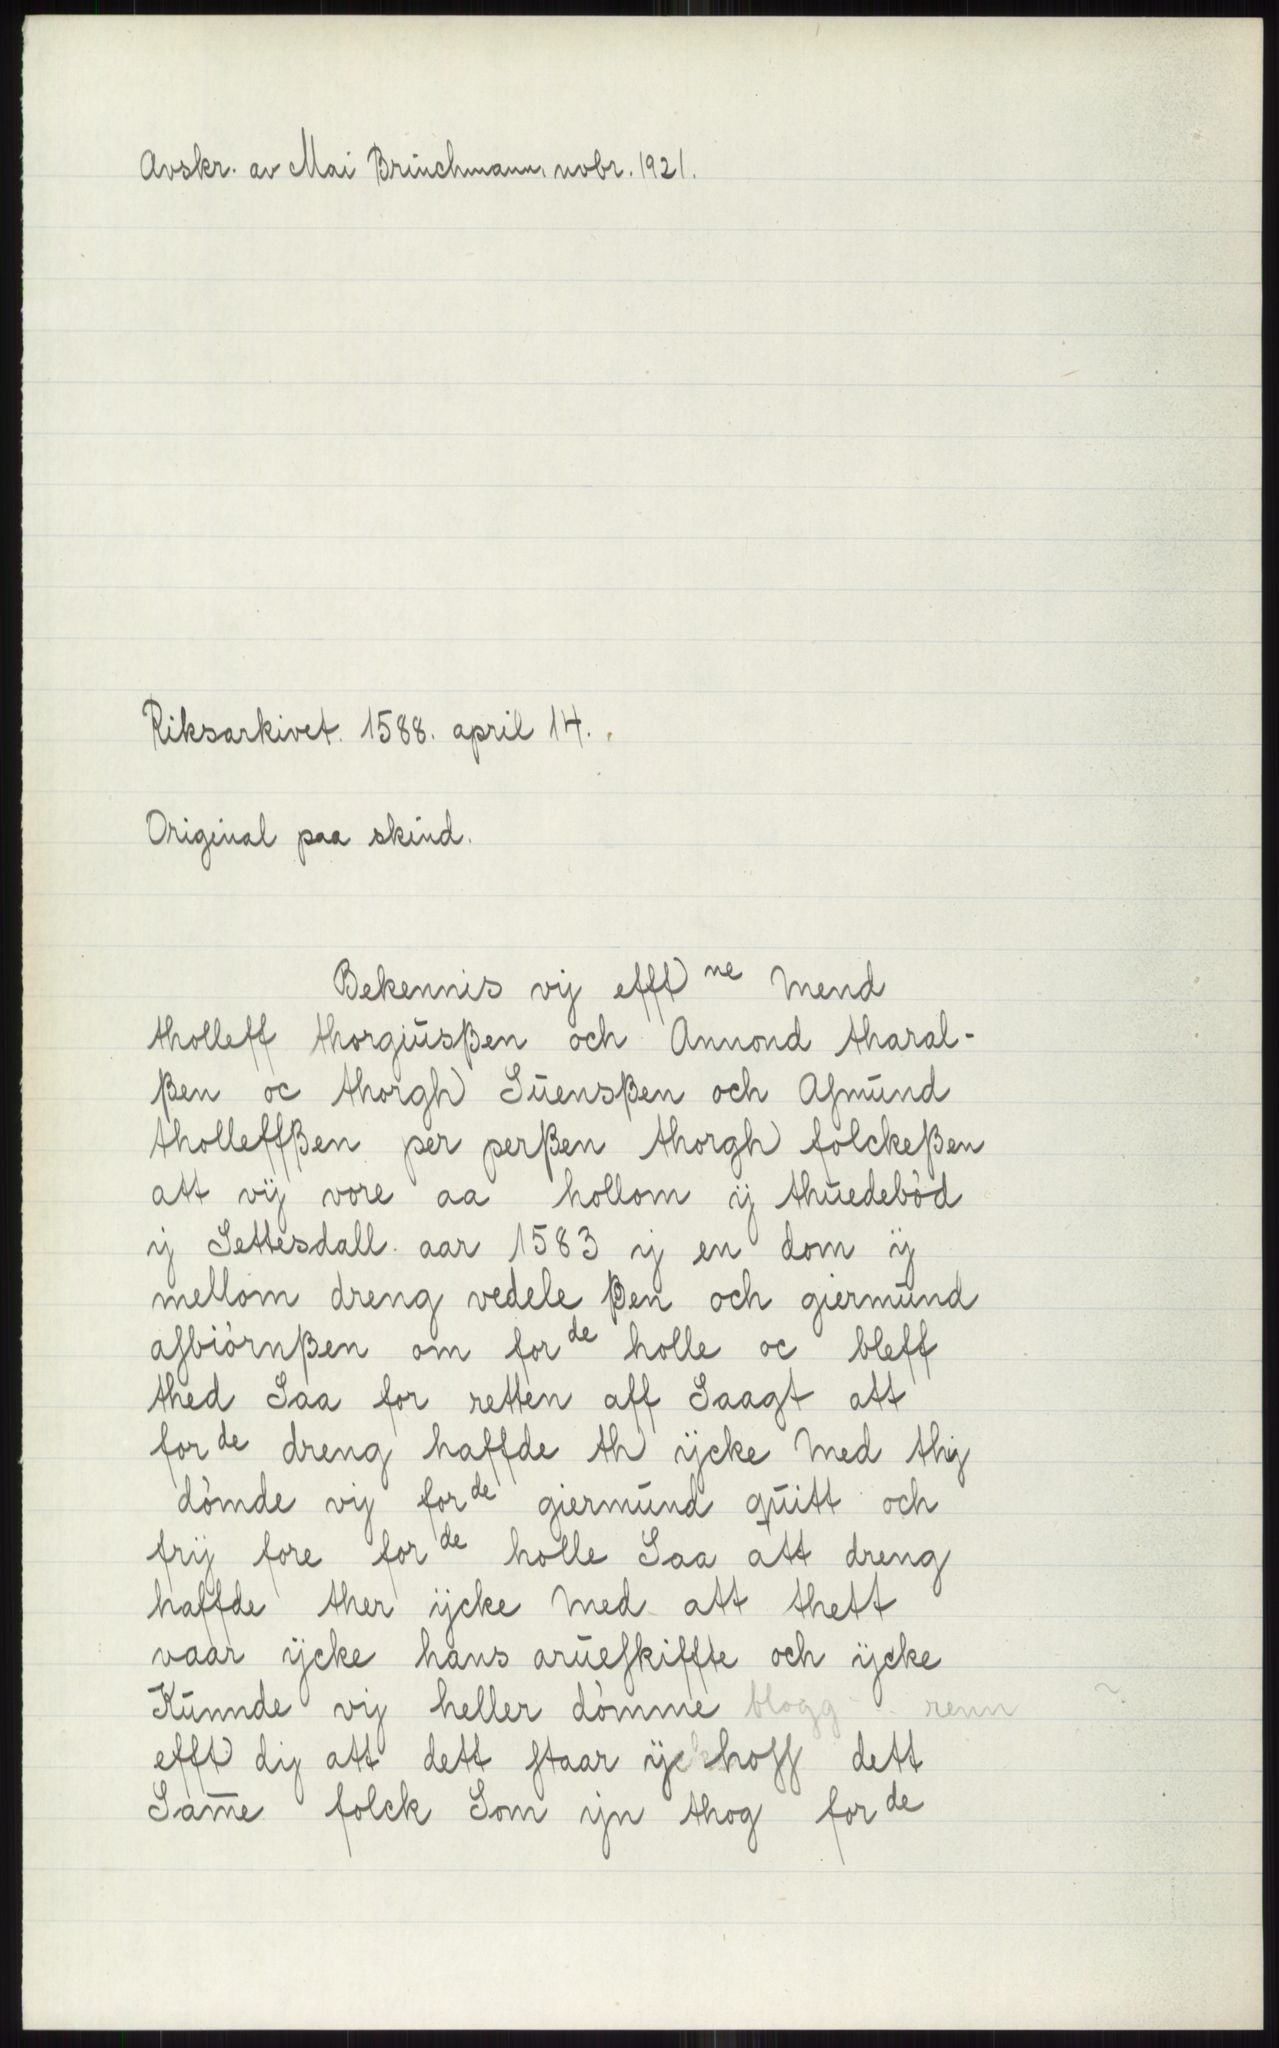 Avskr. av Mai Bruchmann. nvbr. 1921.
Riksarkivet. 1588. april 14.
Original paa skind.
Bekennis vij efft ne Mend
tholleff thorgiusßen och Annond tharal-
ßen oc thorgh Suensßen och Aſmund
tholleffßen per perßen thorgh folckeßen
att vÿ vore aa hollom ÿ thuedebød
ij Settesdall. aar 1583 ij en dom ÿ
mellom dreng vedele ßen och giermund
aſbiørnßen om for de holle oc bleff
thed Saa for retten aff Saagt att
for de dreng haffde th ÿcke Med thij
dømde vij for de giermund quitt och
frij fore for de holle Saa att dreng
haffde ther ÿcke Med att thett
vaar ÿcke hans arueſkiffte och ÿcke
Kunnde vij heller dømme blogg renn ?
efft dij att dett ſtaar ÿ hoſſ dett
Same folck Som ijn thog for de